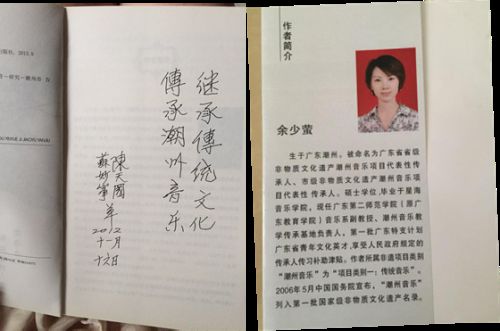 出版社，2012.9
继承传统文化
傳承潮州音乐
陳天國
蘇妙箏
2012年
十一月
十六日
作者简介
余少莹
生于广东潮州。被命名为广东省省级
非物质文化遗产潮州音乐项目代表性传
承人、市级非物质文化遗产潮州音乐项
目代表性传承人。硕士学位，毕业于星海
音乐学院，现任广东第二师范学院（原广
东教育学院）音乐系副教授、潮州音乐教
学传承基地负责人，第一批广东特支计划
广东省青年文化英才，享受人民政府规定的
传承人传习补助津贴。作者所属非遗项目类别
“潮州音乐”为“项目类别一：传统音乐”。
2006年5月中国国务院宣布，“潮州音乐”
列入第一批国家级非物质文化遗产名录。